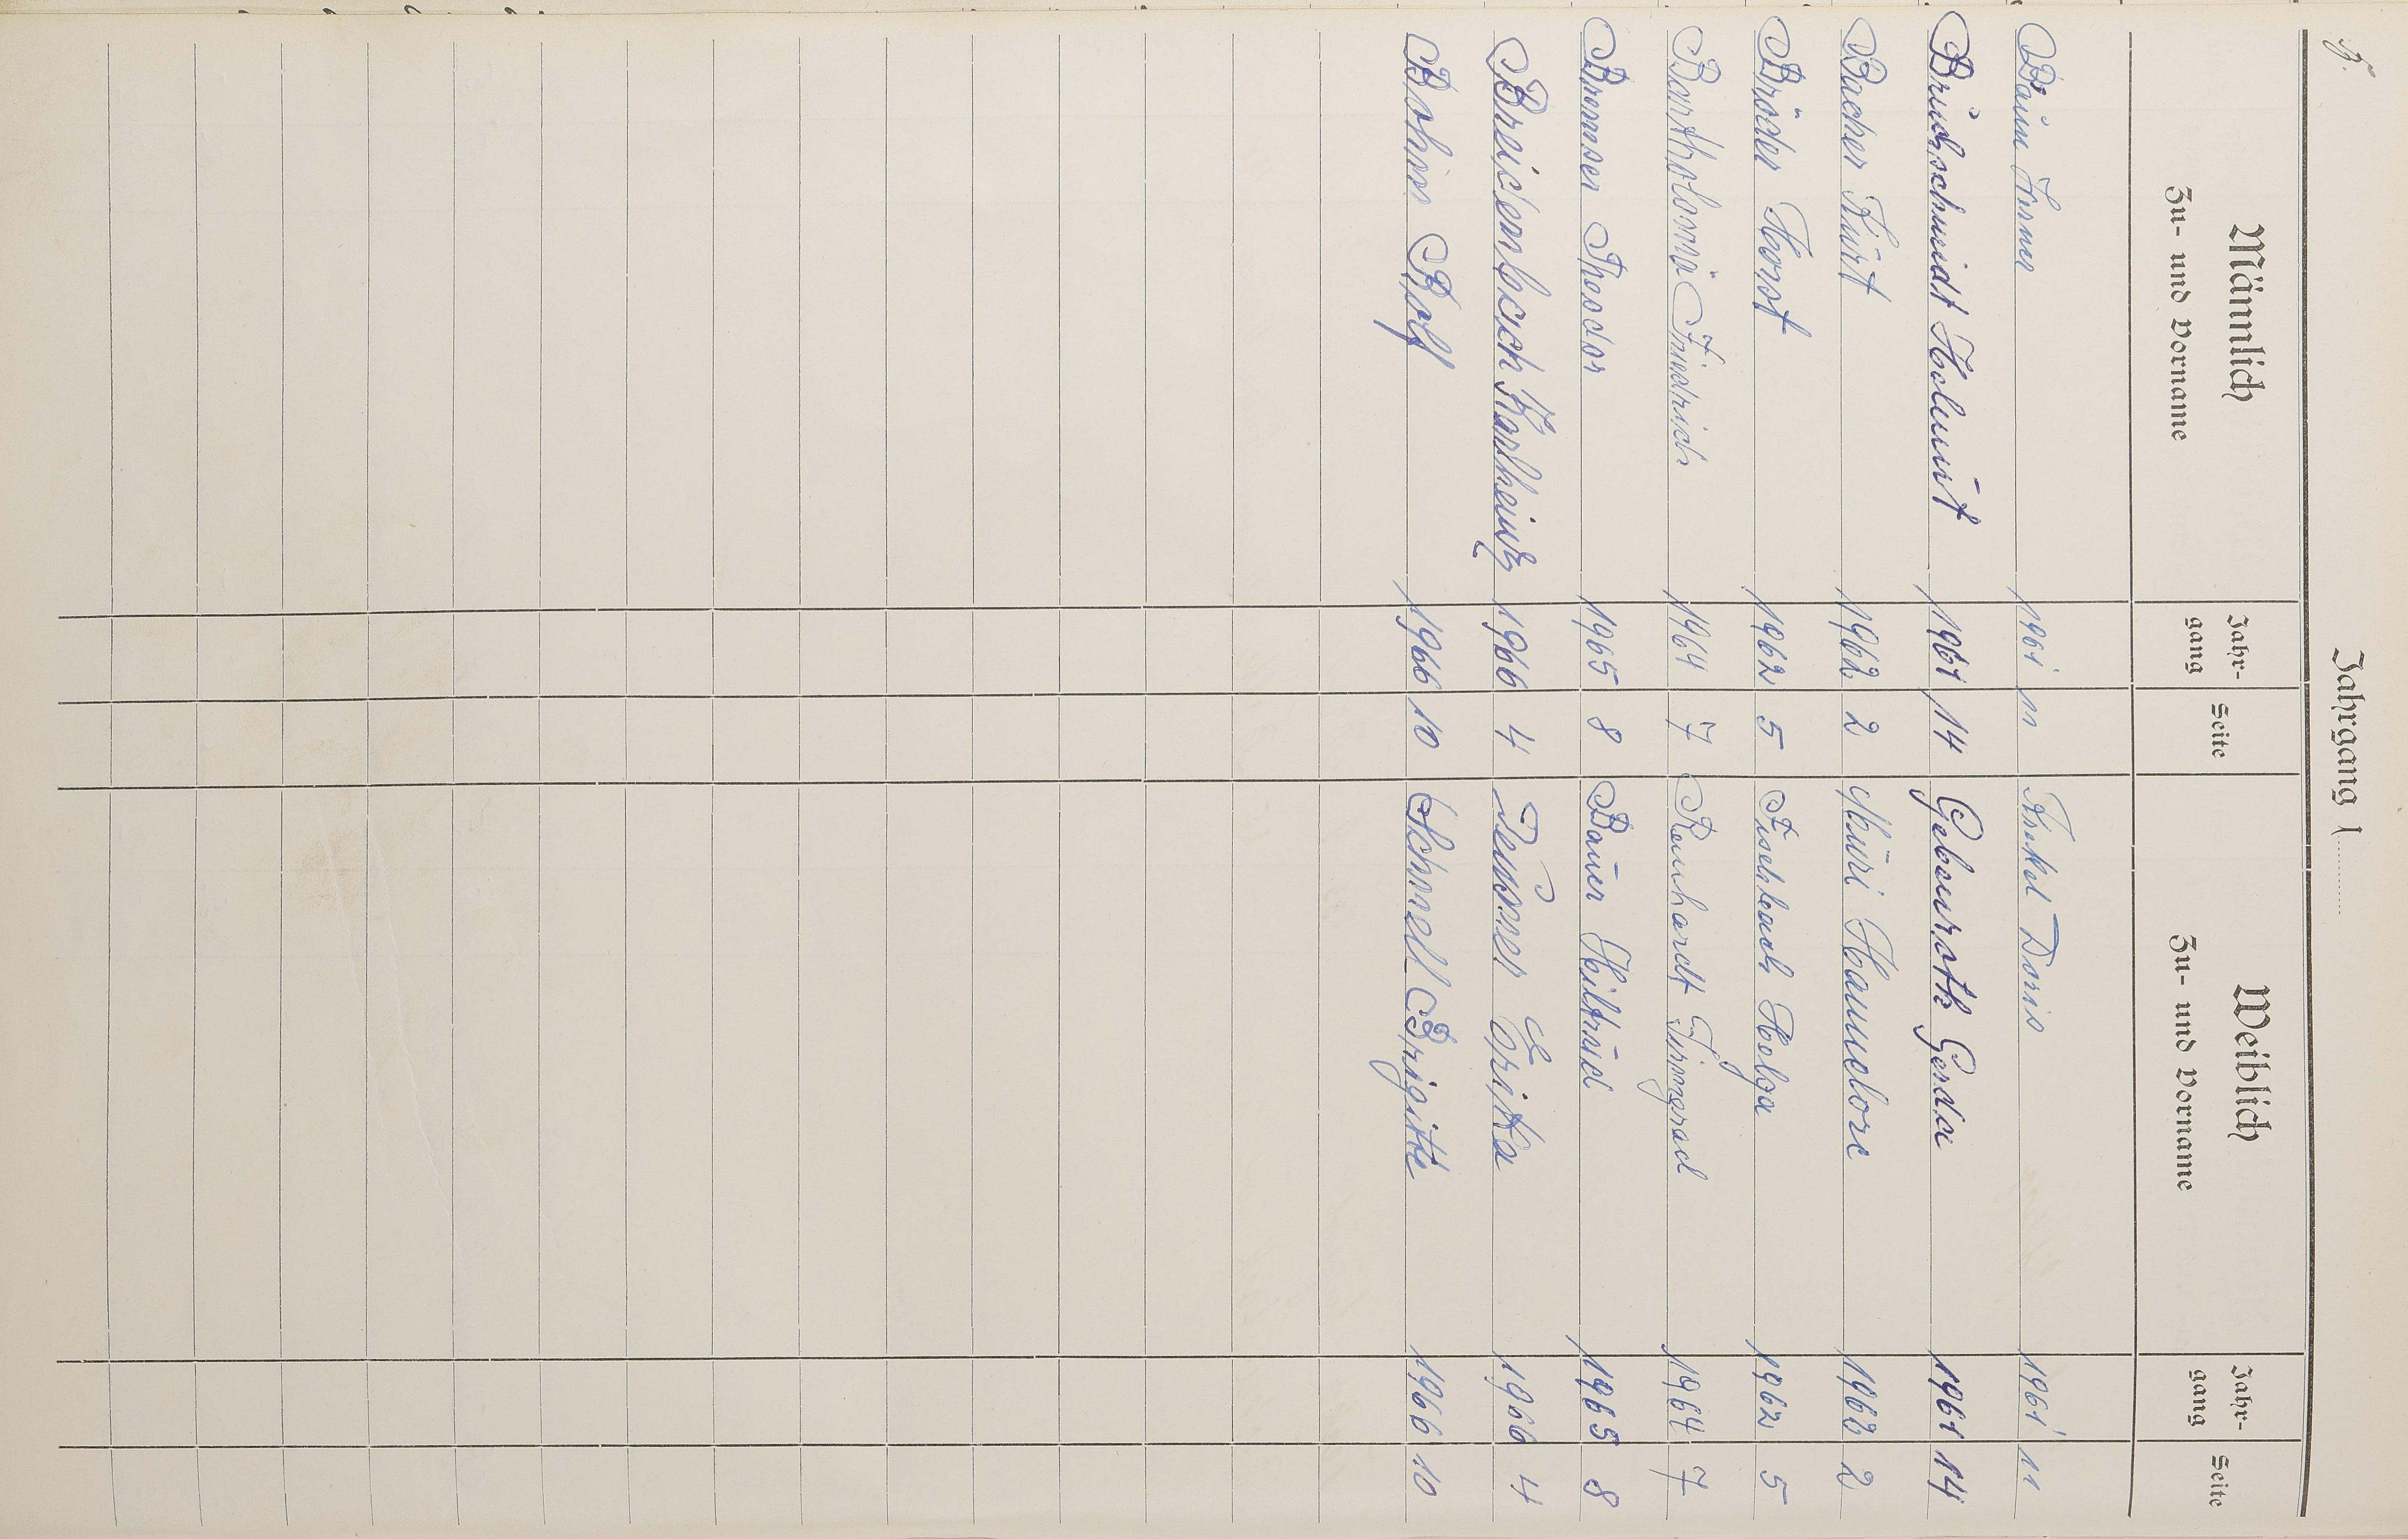 B.
Jahrgang 1
Männlich Weiblich
Zu- und Vorname Jahr- Seite Zu- und Vorname Jahr- Seite
gang gang
Baum 1961 11 Doris 1961 11
Brückschmidt Helmut 1961 14 Gebauroth Gerda 1961 14
Bacher Kurt 1962 2 Müri Hannelore 1962 2
Bröder Horst 1962 5 Fischbach Helga 1962 5
Bartholomä Friedrich 1964 7 Bernhardt Irmgard 1964 7
Bremser Theodor 1965 8 Bauer Hiltrud 1965 8
Breidenbach Karlheinz 1966 4 Deusser Erika 1966 4
Bohm Rolf 1966 10 Schnell Brigitte 1966 10